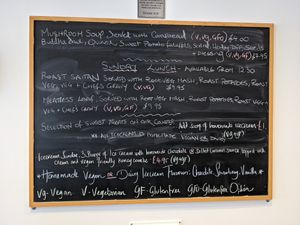 MUSHROOM SOUP, Served with Cornbread (V, VG, GFO) £4.00
Buddha bowl, Quinoa, Sweet Potato Falafels, Salad,
+ Dressing (V, VG, GF) £7.95
SUNDAY LUNCH - AVAILABLE FROM 12.30
ROAST SEITAN SERVED WITH ROOT VEG MASH, ROAST POTATOES, ROAST
VEG + CHEFS GRAVY (V, VG) £9.95
MEATLESS LOAF, SERVED WITH ROOT VEG MASH, ROAST POTATOES, ROAST VEG
VEG + CHEFS GRAVY (V, VG, GF)
SELECTION OF SWEET TREATS ON OUR COUNTER
Add scoop of homemade icecream £1
(vg, gf)
ALL ICECREAM IS AVAILABLE VEGAN OR DAIRY
Icecream Sundae, 3 Scoops of Ice Cream with homemade chocolate or Salted Caramel sauce topped with
Cream and vegan friendly honeycombe £4.95 (vg, gf)
* Homemade Vegan or Dairy Icecream Flavours: Chocolate, Strawberry, Vanilla *
Vg-Vegan V-Vegetarian GF-Glutenfree GFO-Glutenfree Option